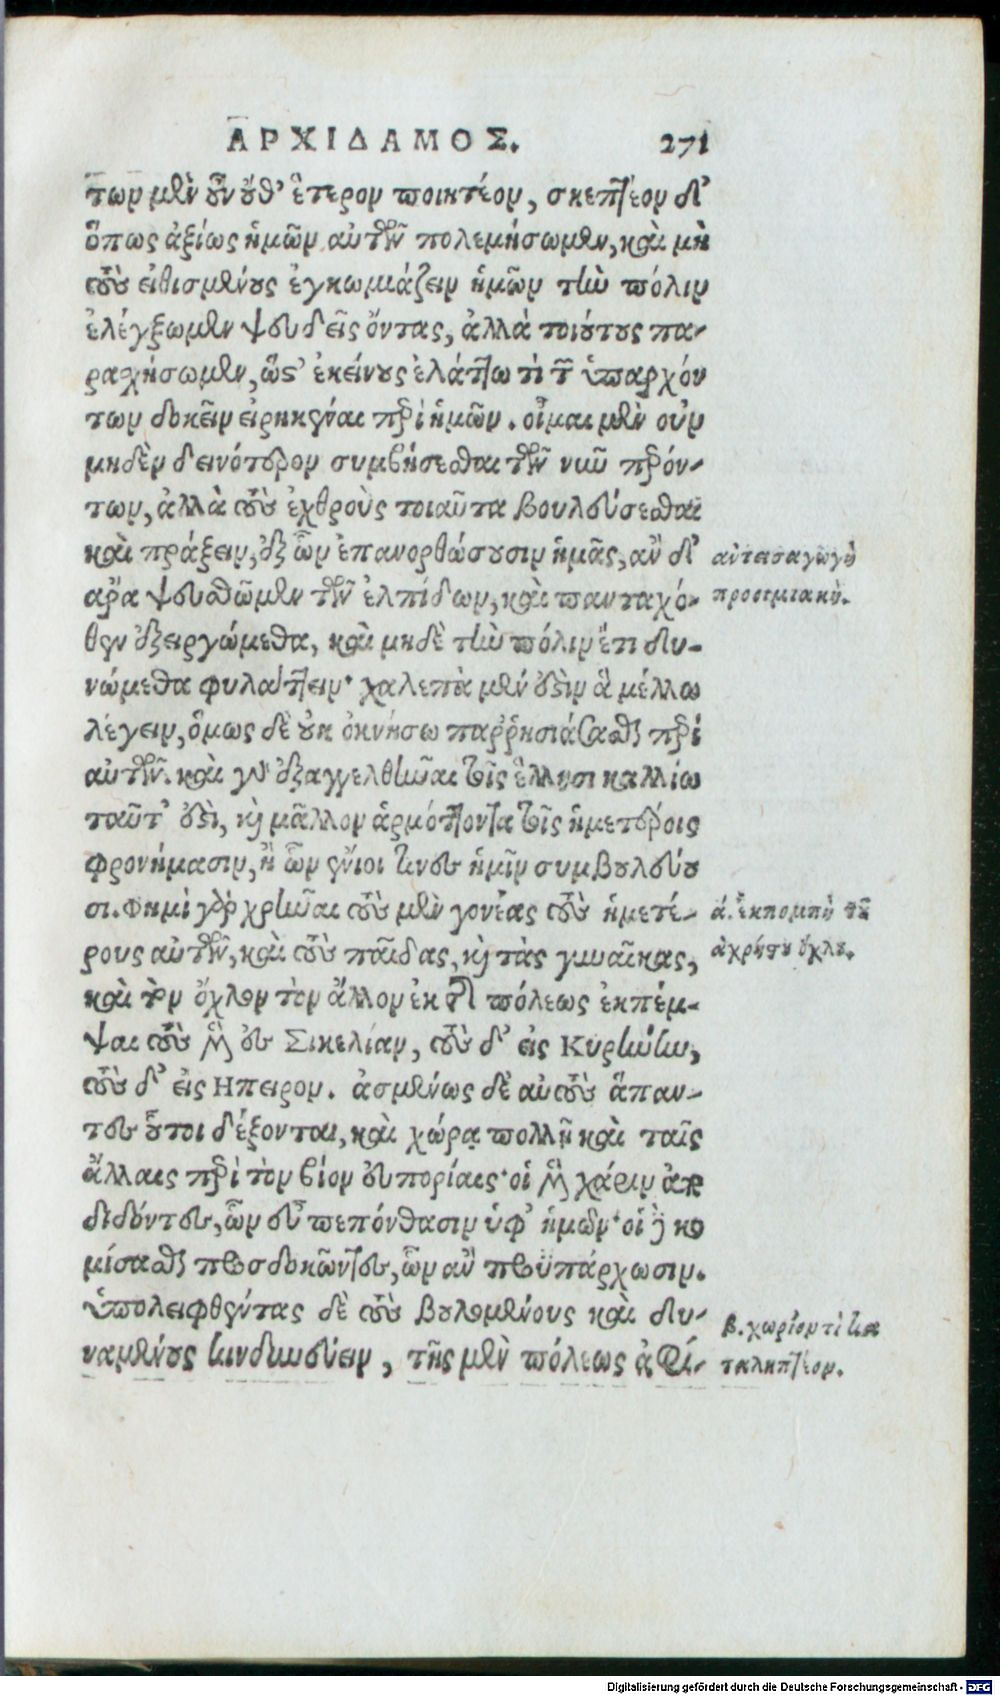 ΑΡΧΙΔΑΜΟΣ. 271
των μὲν οὖν οὐθ' ἕτερον ποιητέον, σκεπτέον δ'
ὅπως ἀξίως ἡμῶν αὐτῶν πολεμήσωμεν, καὶ μὴ
τοὺς εἰθισμένους ἐγκωμιάζειν ἡμῶν τὴν πόλιν
ἐλέγξωμεν ψευδεῖς ὄντας, ἀλλὰ τοιούτους πα-
ραχήσωμεν, ὥστ' ἐκείνους ἐλάττω τὶ τῶν ὑπαρχόν
των δοκεῖν εἰρηκέναι περὶ ἡμῶν. οἶμαι μὲν οὖν
μηδὲν δεινότερον συμβήσεσθαι τῶν νῦν παρόν-
των, ἀλλὰ τοὺς ἐχθροὺς τοιαῦτα βουλεύσεσθαι
καὶ πράξειν, ἐξ ὧν ἐπανορθώσουσιν ἡμᾶς, ἂν δ'
ἄρα ψευσθῶμεν τῶν ἐλπίδων, καὶ πανταχό-
θεν ἐξειργώμεθα, καὶ μηδὲ τὴν πόλιν ἔτι δυ-
νώμεθα φυλάττειν· χαλεπὰ μέν ἐστιν ἃ μέλλω
λέγειν, ὅμως δὲ οὐκ ὀκνήσω παῤῥησιάσασθαι περὶ
αὐτῶν. καὶ γὰρ ἐξαγγελθῆναι τοῖς ἕλλησι καλλίω
ταῦτ' ἐστὶ, καὶ μᾶλλον ἁρμόττοντα τοῖς ἡμετέροις
φρονήμασιν, ἢ ὧν ἔνιοί τινες ἡμῖν συμβουλεύου
σι. Φημὶ γὰρ χρῆναι τοὺς μὲν γονέας τοὺς ἡμετέ-
ρους αὐτῶν, καὶ τοὺς παῖδας, καὶ τὰς γυναῖκας,
καὶ τὸν ὄχλον τὸν ἄλλον ἐκ τῆς πόλεως ἐκπέμ-
ψαι τοὺς μὲν εἰς Σικελίαν, τοὺς δ' εἰς Κυρήνην,
τοὺς δ' εἰς Ηπειρον. ἀσμένως δὲ αὐτοὺς ἅπαν-
τες οὗτοι δέξονται, καὶ χώρᾳ πολλῇ καὶ ταῖς
ἄλλαις περὶ τὸν βίον εὐπορίαις· οἱ μὲν χάριν ἀπο
διδόντες, ὧν εὖ πεπόνθασιν ὑφ' ἡμῶν· οἱ δὲ κο
μίσασθαι προσδοκῶντες, ὧν αὖ προϋπάρχωσιν.
ὑπολειφθέντας δὲ τοὺς βουλομένους καὶ δυ-
ναμένους κινδυνεύειν, τῆς μὲν πόλεως ἀφέ-
ἀντεισαγωγὴ
προοιμιακή.
ά. ἐκπομπὴ τοῦ
ἀχρήστου ὄχλου.
β. χωρίον τὶ κα
ταληπτέον.
Digitalisierung gefördert durch die Deutsche Forschungsgemeinschaft - DFG